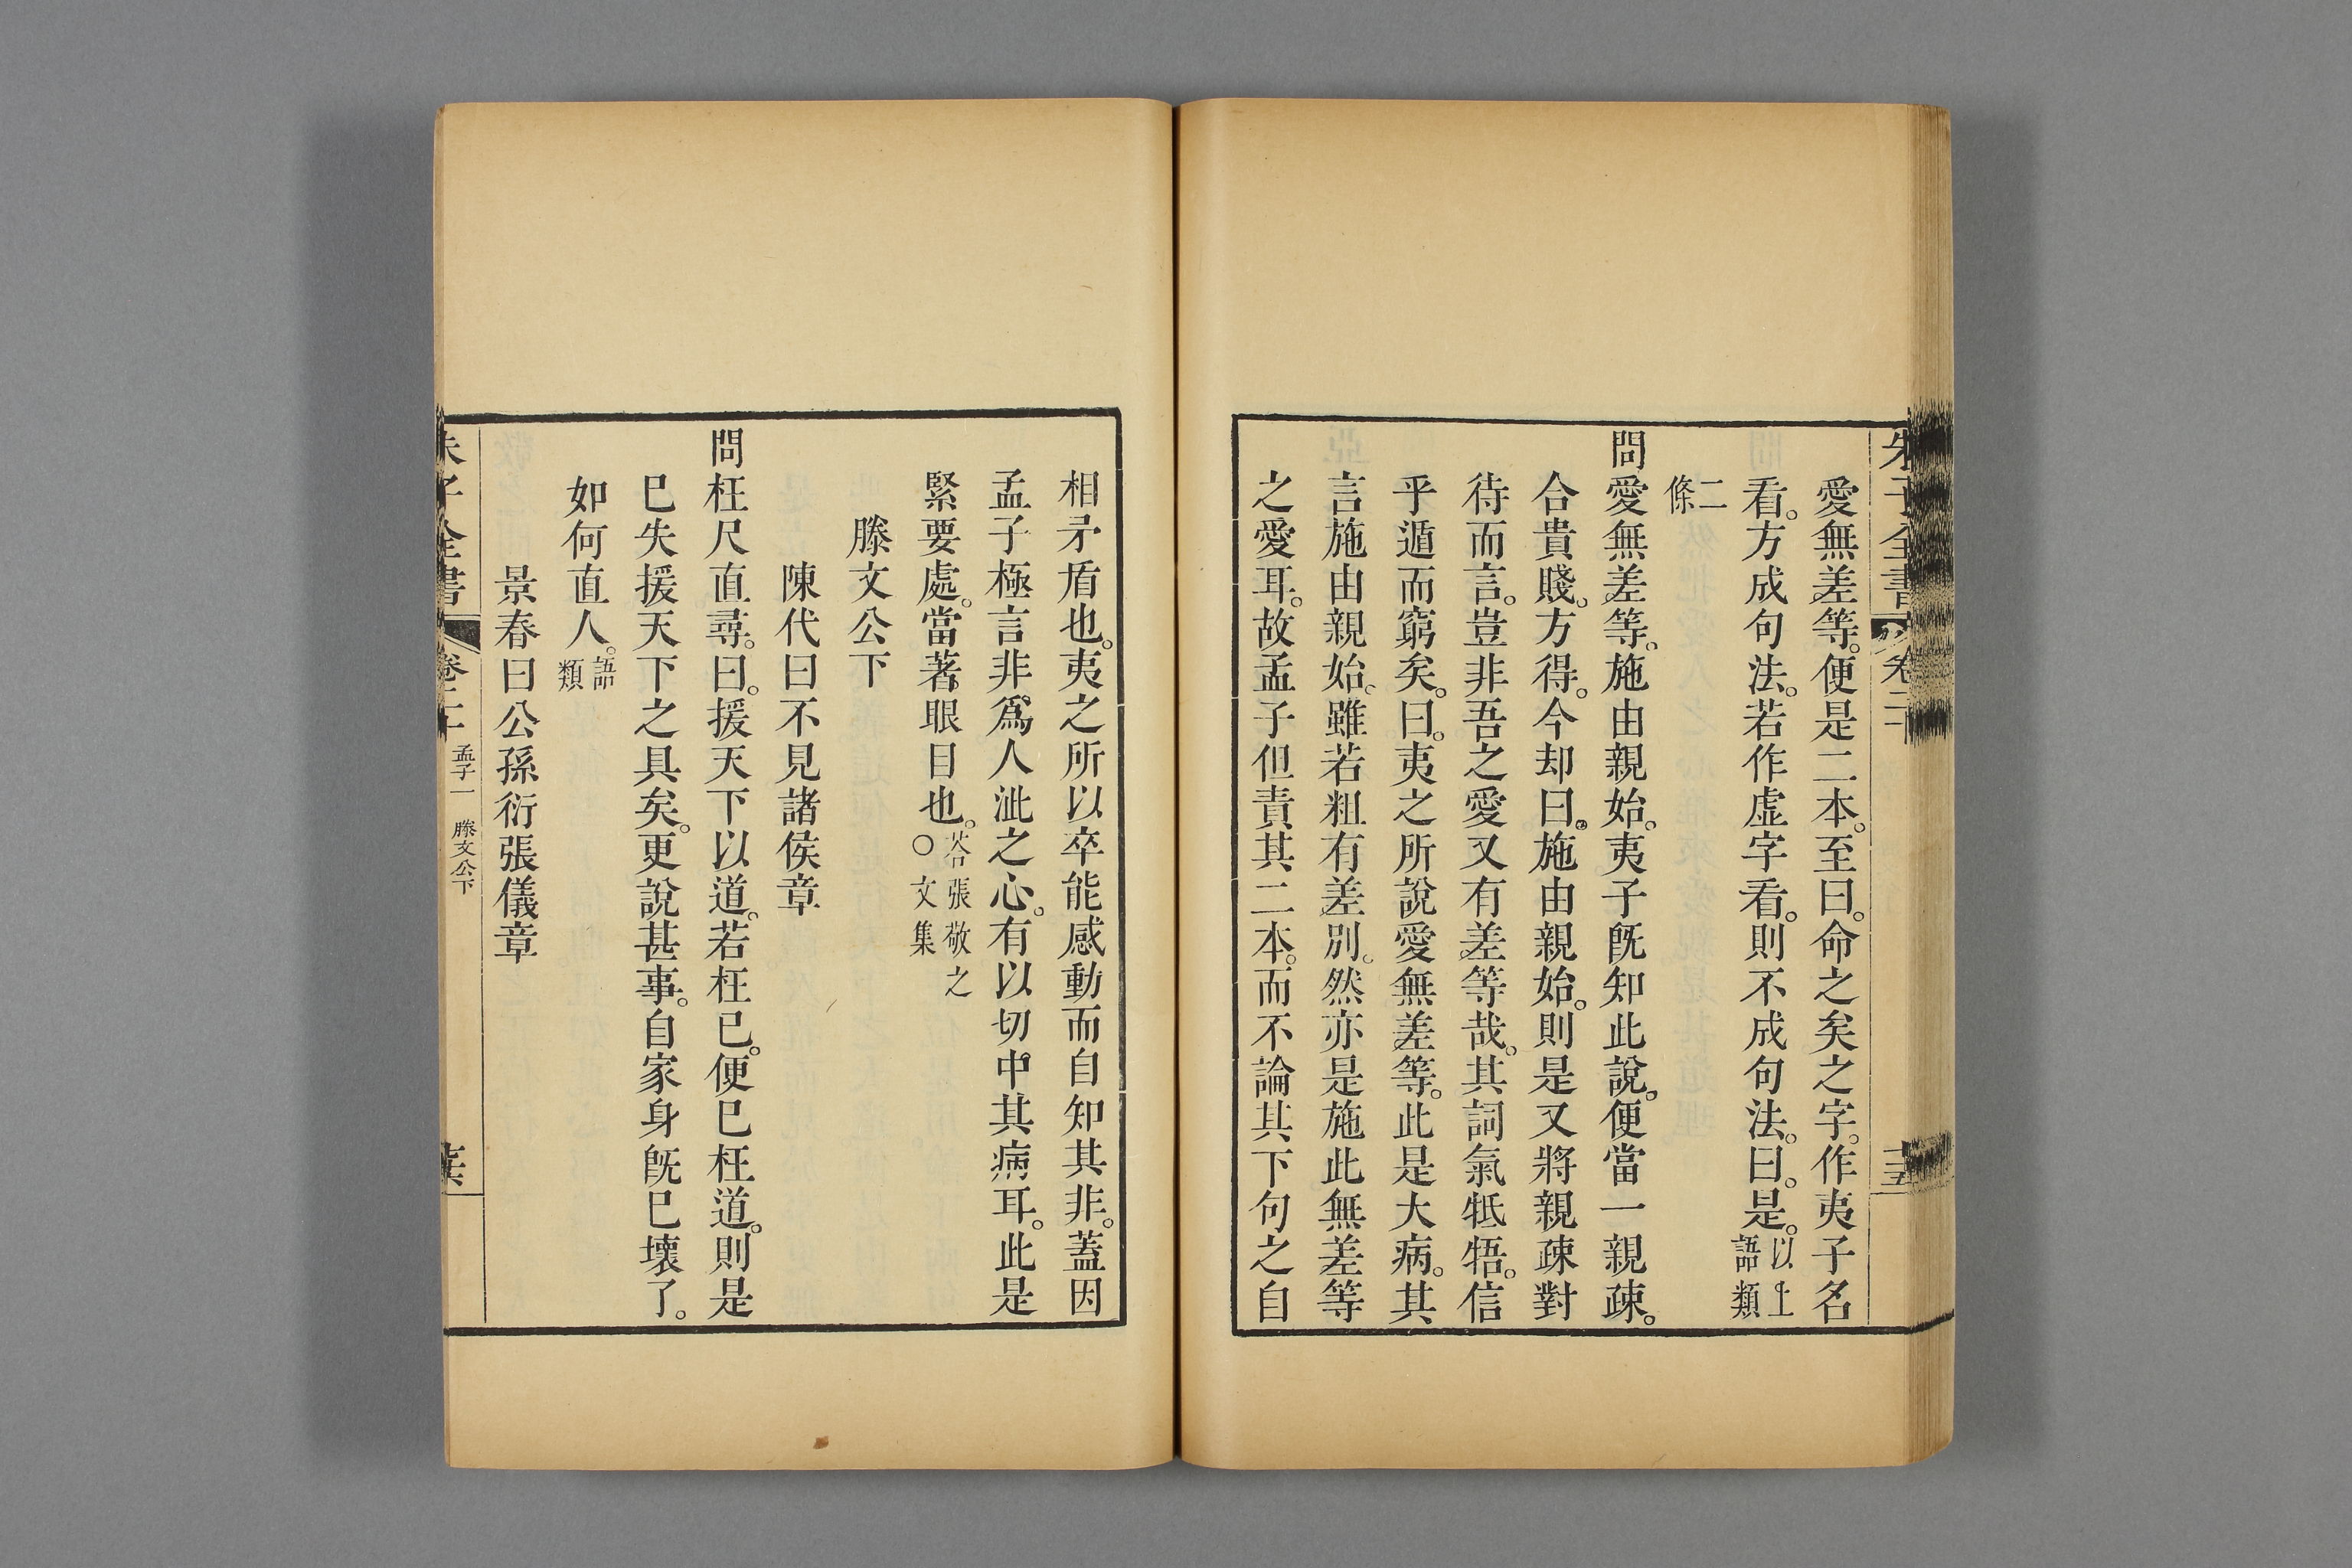 愛無差等。便是二本。至曰。命之矣之字。作夷子名
看。方成句法。若作虛字看。則不成句法。曰。是。以上語類
二條
問愛無差等。施由親始。夷子旣知此說。便當一親疎。
合貴賤。方得。今却曰。施由親始。則是又將親疎對
待而言。豈非吾之愛又有差等哉。其詞氣牴牾。信
乎遁而窮矣。曰。夷之所說愛無差等。此是大病。其
言施由親始。雖若粗有差別。然亦是施此無差等
之愛耳。故孟子但責其二本。而不論其下句之自
相矛盾也。夷之所以卒能感動而自知其非。蓋因
孟子極言非爲人泚之心。有以切中其病耳。此是
緊要處。當著眼目也。答張敬之○文集
滕文公下
陳代曰不見諸侯章
問枉尺直尋。曰。援天下以道。若枉已。便已枉道。則是
已失援天下之具矣。更說甚事。自家身旣已壞了。
如何直人。語類
景春曰公孫衍張儀章
朱子全書 卷二十 孟子一 滕文公下